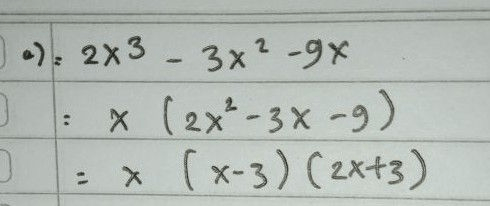 a) = 2x³ - 3x² - 9x
= x (2x² - 3x - 9)
= x (x-3) (2x+3)